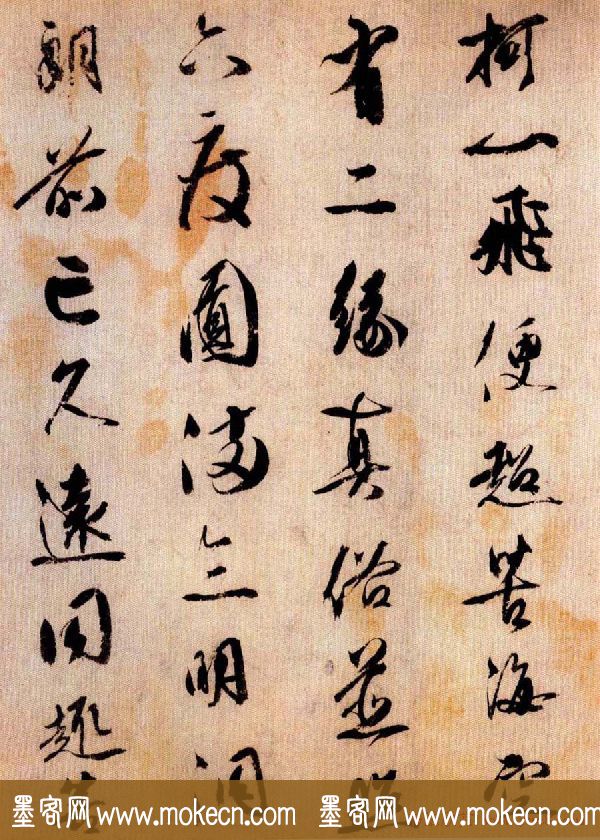 飛便超苦海空
有二緣真俗並
六度圓滿三明洞
朗前亡久遠同趣
墨客网 www.mokecn.com 墨客网 www.mokecn.com